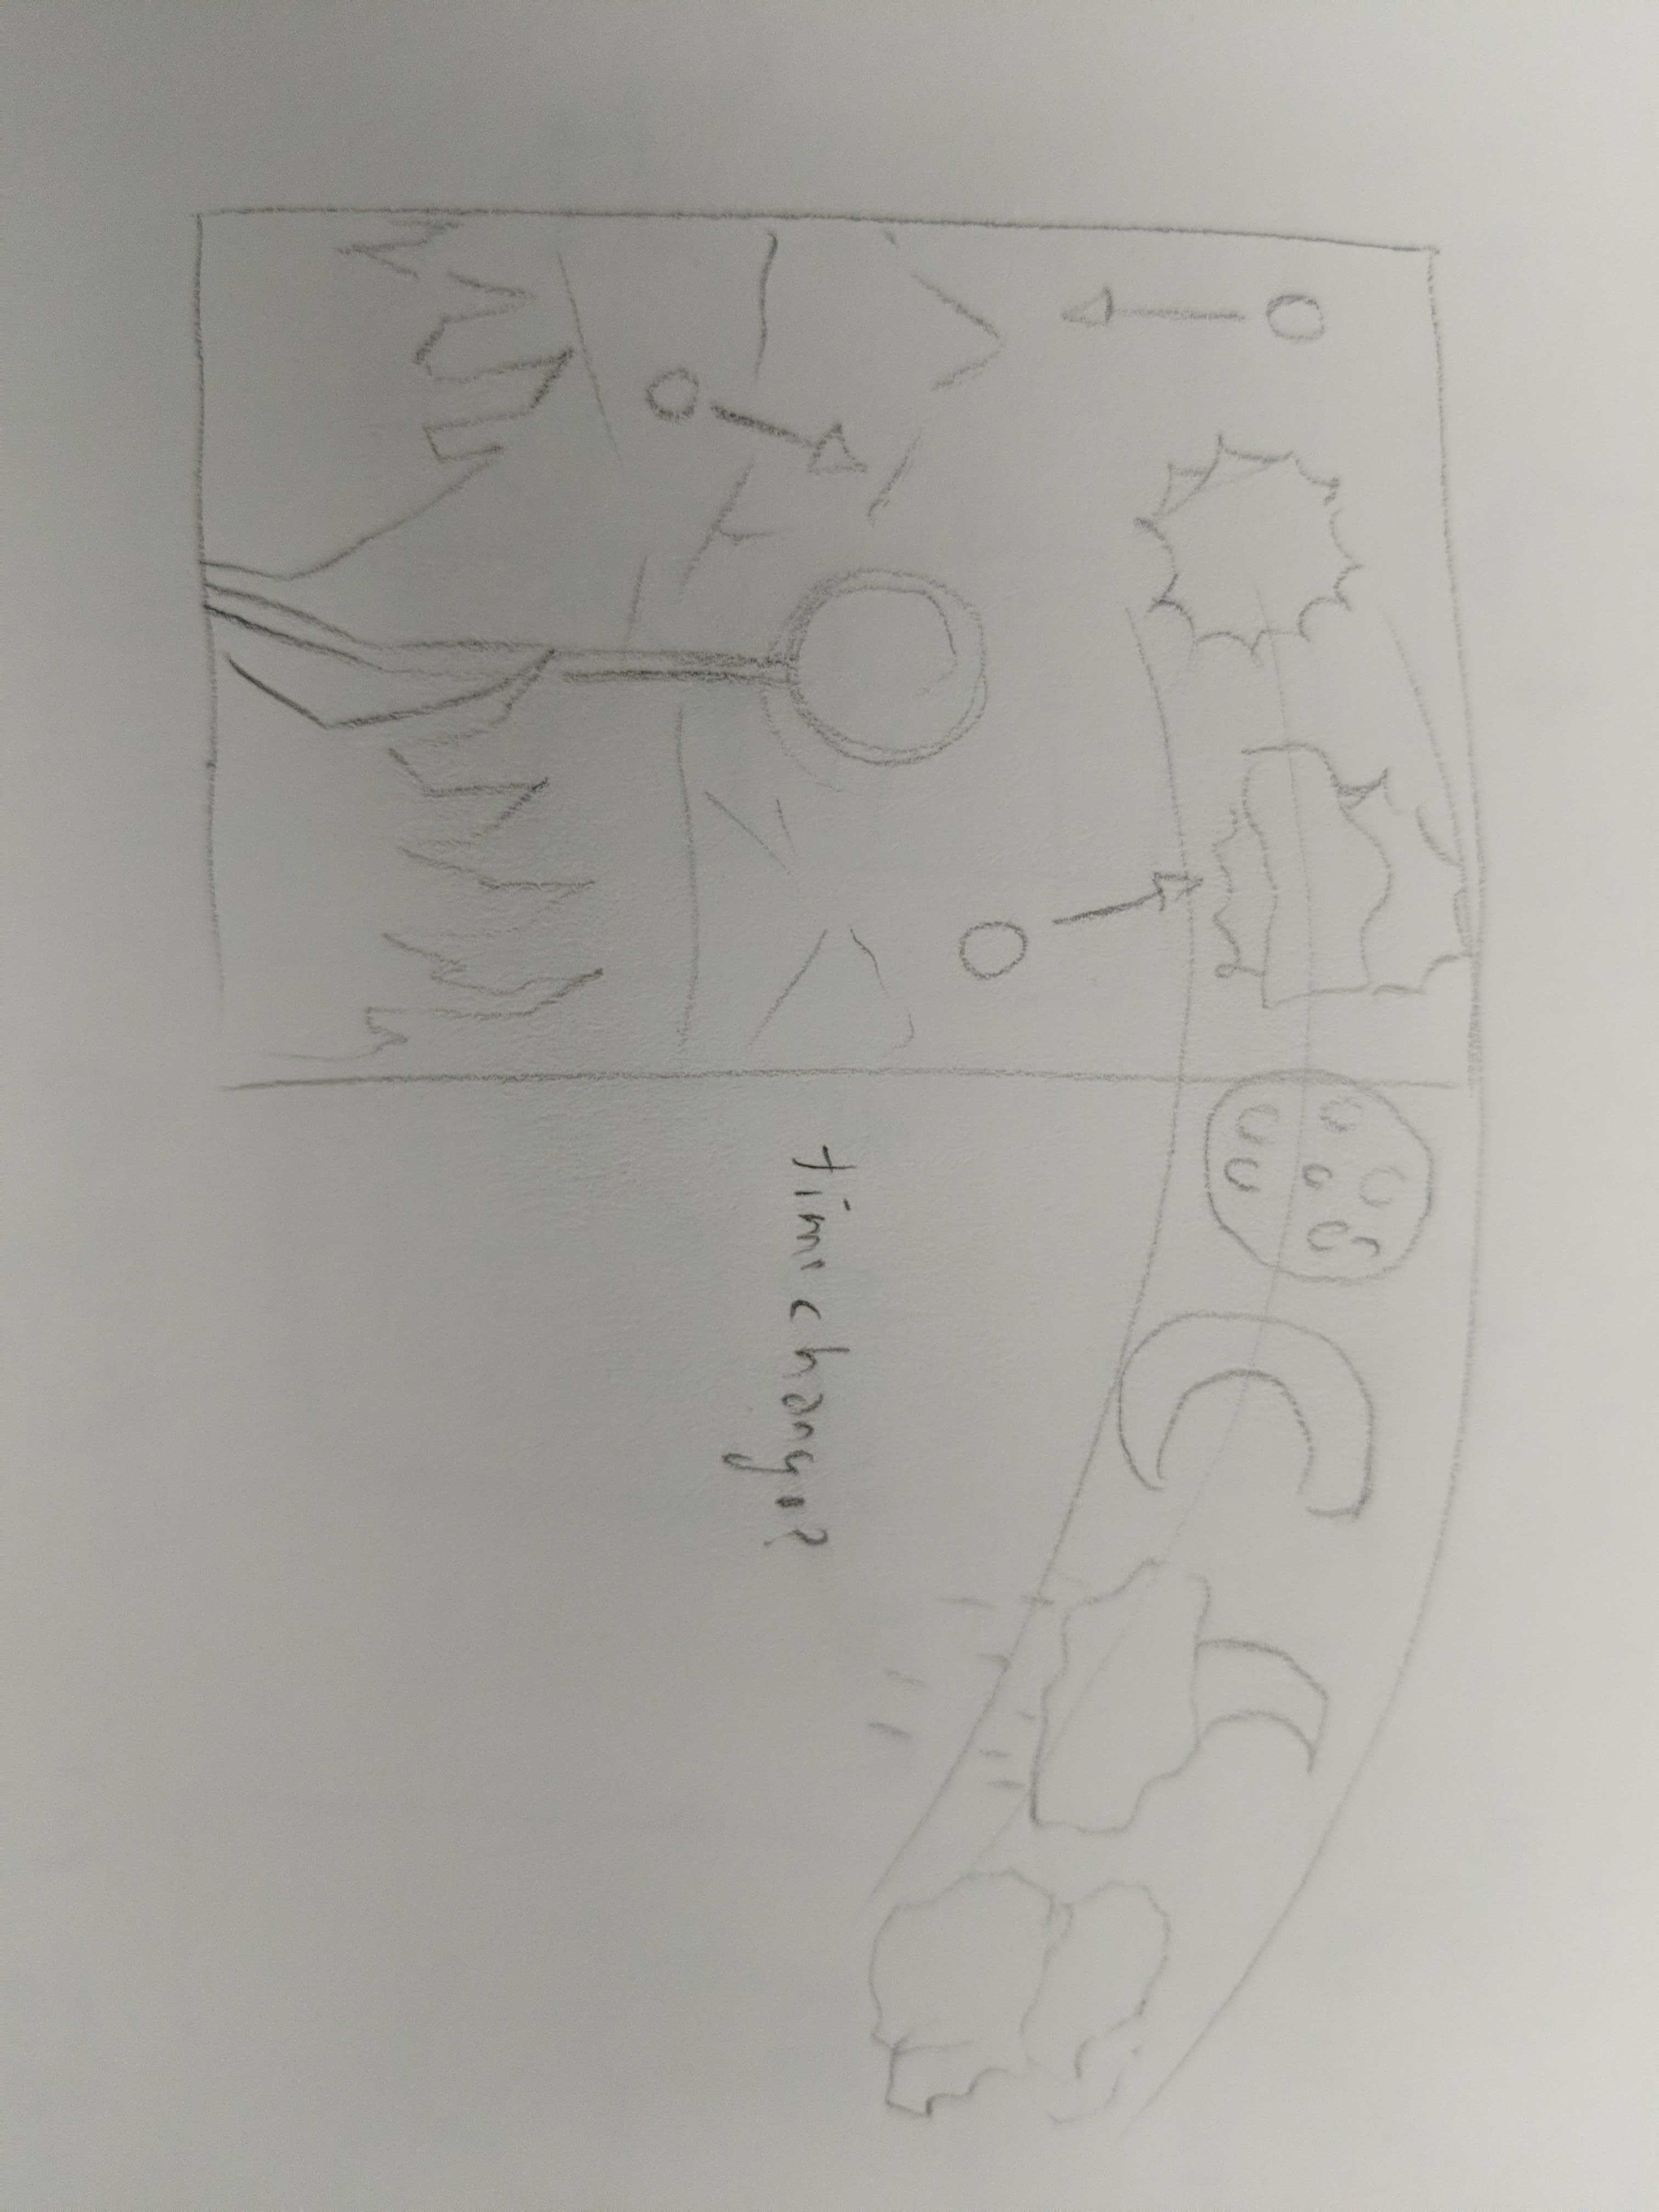 time change?